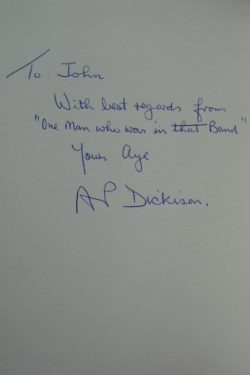 To John
With best regards from
"One Man who was in that Band"
Yours Aye
AP Dickison.